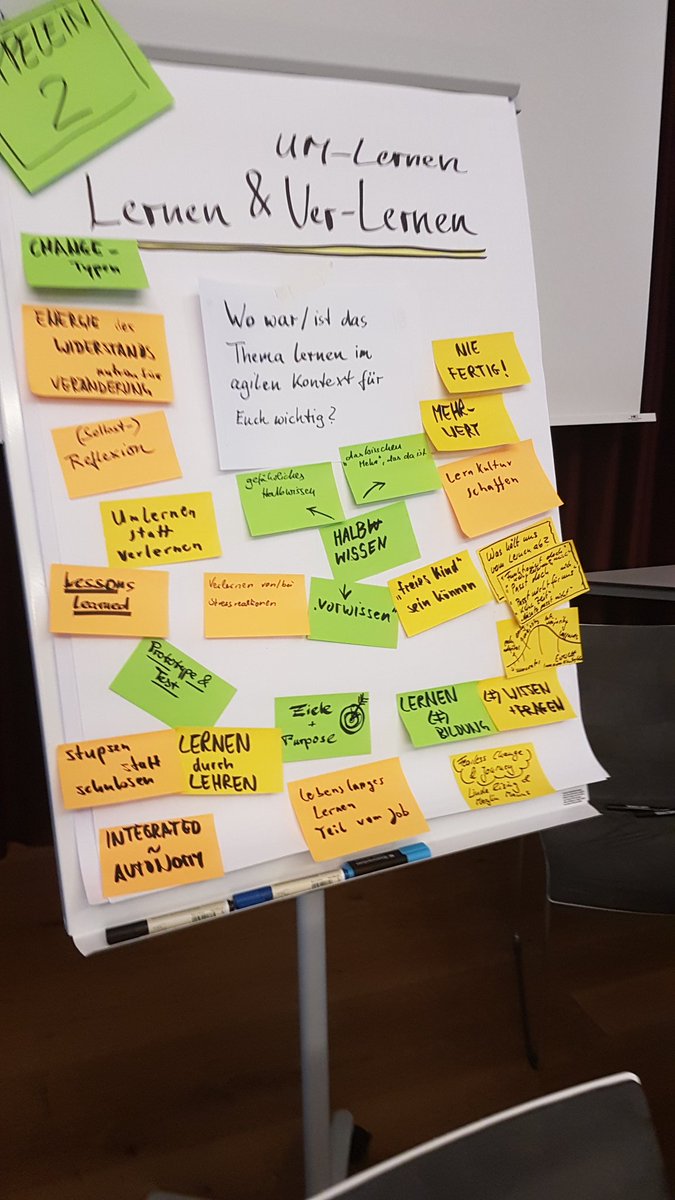 2
UM-Lernen
Lernen & Ver-Lernen
CHANGE-
Typen
ENERGIE des
WIDERSTANDS
nutzen für
VERÄNDERUNG
Wo war/ist das
Thema lernen im
agilen Kontext für
Euch wichtig?
NIE
FERTIG!
MEHR-
WERT
(Selbst-)
Reflexion
gefährliches
Halbwissen
"das bisschen
Mehr", das da ist
Lernkultur
schaffen
Umlernen
statt
verlernen
HALB
WISSEN
Was hält uns
vom Lernen ab?
Lessons
Learned
Verlernen von/bei
Stressreaktionen
Vorwissen
"freies Kind"
sein können
Prototype &
Test
Ziele
+
Purpose
LERNEN
(≠)
BILDUNG
(≠) WISSEN
+ FRAGEN
stupsen
statt
schubsen
LERNEN
durch
LEHREN
Lebenslanges
Lernen
Teil vom Job
Fearless Change
& Journey
Linda Rising &
Mary Lynn Manns
INTEGRATED
~
AUTONOMY